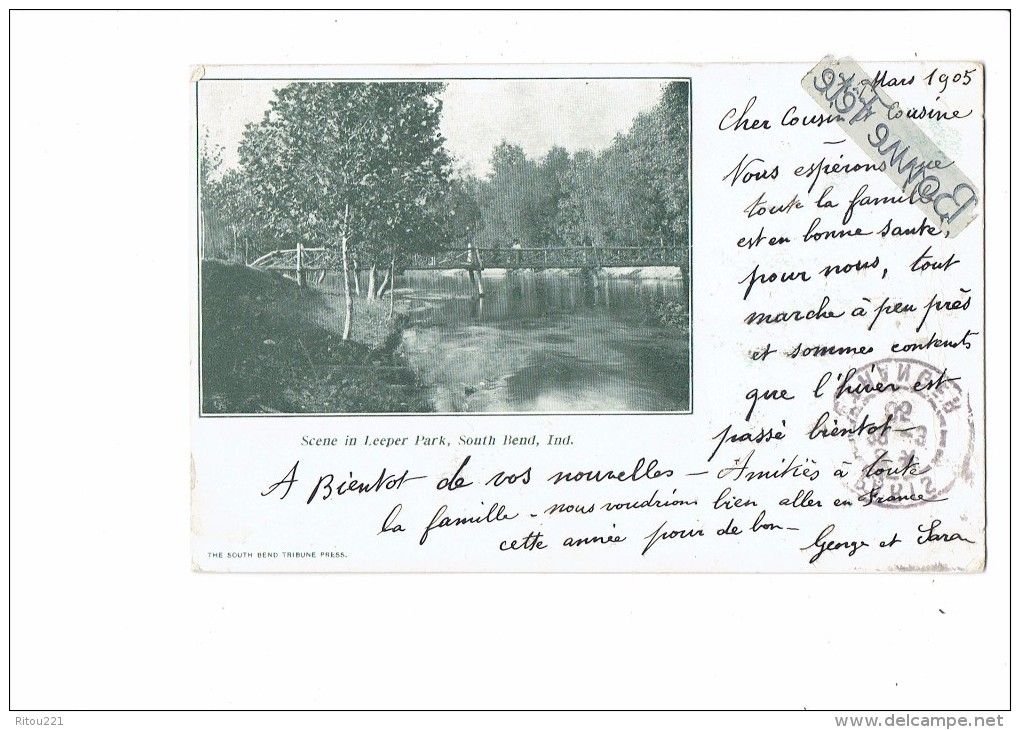 Mars 1905
Cher Cousin Cousine
BONNE FÊTE
Nous espérons que
toute la famille
est en bonne santé,
pour nous, tout
marche à peu près
et sommes contents
que l'hiver est
passé bientôt —
Scene in Leeper Park, South Bend, Ind.
A Bientôt de vos nouvelles — Amitiés à toute
la famille - nous voudrions bien aller en France
cette année pour de bon —
George et Sara
THE SOUTH BEND TRIBUNE PRESS.
ETRANGER
PARIS
Ritou221
www.delcampe.net